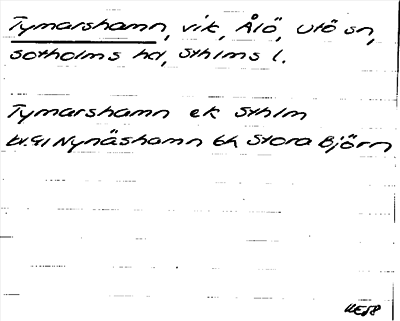 Tymarshamn, vik, Ålö, Utö sn,
Sotholms hd, Sthlms l.
Tymarshamn ek Sthlm
bl. 91 Nynäshamn bh Stora Björn